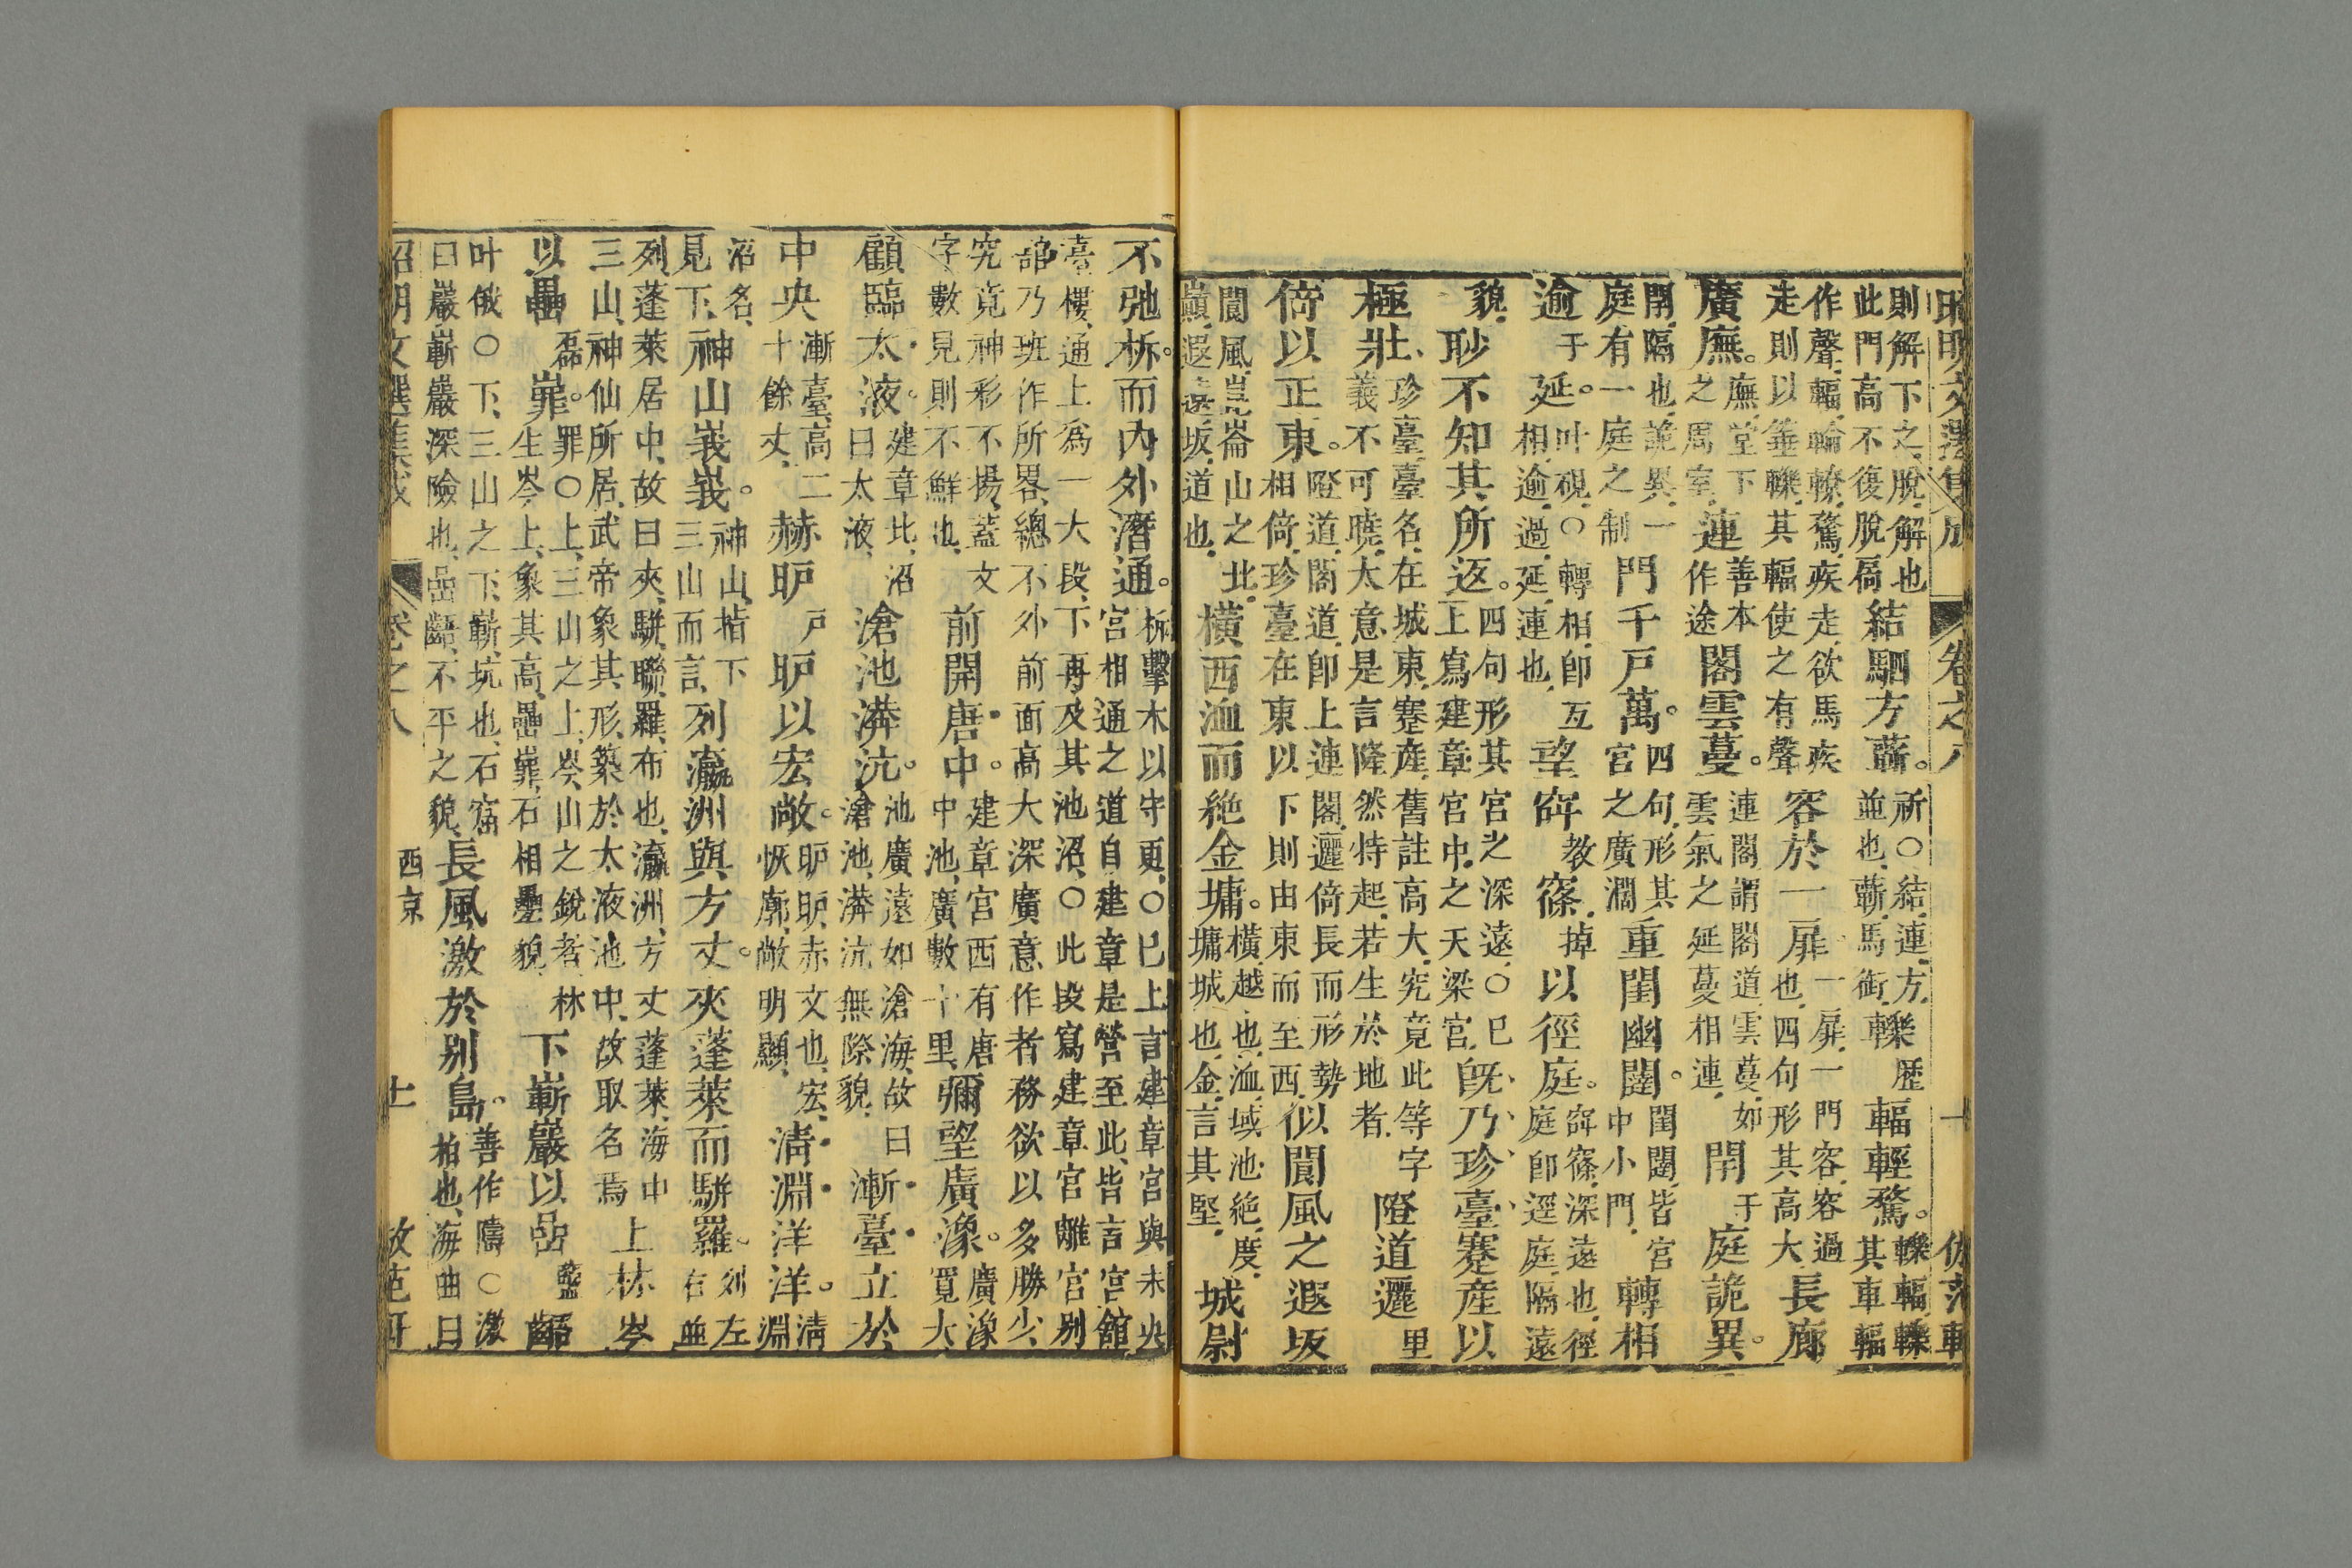 昭明文選集成 卷之八 十 倣范軒
則解下之脫解也
此門高不復脫扃結駟方蘄祈○結連方
並也蘄馬銜轢歷輻輕騖轢輻轢
其車輻
作聲輻輪轑騖疾走欲馬疾
走則以箠轢其輻使之有聲容於一扉一扉一門容容過
也四句形其高大長廊
廣廡廡堂下
之周室連善本
作途閣雲蔓連閣謂閣道雲蔓如
雲氣之延蔓相連閈于庭詭異
閈隔也詭異一
庭有一庭之制門千戶萬四句形其
宮之廣濶重閨幽闥閨闥皆宮
中小門轉相
逾于延叶硯○轉相卽互
相逾過延連也望窱教窱掉以徑庭窱窱深遠也徑
庭卽逕庭隔遠
貌眇不知其所返四句形其宮之深遠○已
上寫建章宮中之天梁宮旣乃珍臺蹇產以
極壯珍臺臺名在城東蹇產舊註高大究竟此等字
義不可曉大意是言隆然特起若生於地者隥道邐里
倚以正東隥道閣道卽上連閣邐倚長而形勢
相倚珍臺在東以下則由東而至西似閬風之遐坂
閬風崑崙山之北
巔遐遠坂道也橫西洫而絕金墉橫越也洫域池絕度
墉城也金言其堅城尉
不弛柝而內外潛通柝擊木以守更○已上言建章宮與未央
宮相通之道自建章是營至此皆言宮館
臺樓通上爲一大段下再及其池沼○此段寫建章宮離宮別
館乃班作所畧總不外前面高大深廣意作者務欲以多勝少
究竟神彩不揚蓋文
字數見則不鮮也前開唐中建章宮西有唐
中池廣數十里彌望廣潒廣潒
寬大
顧臨太液建章北沼
曰太液滄池漭沆池廣遠如滄海故曰
滄池漭沆無際貌漸臺立於
中央漸臺高二
十餘丈赫昈戶昈以宏敞昈昈赤文也宏
恢廓敞明顯淸淵洋洋淸
淵
沼名
見下神山峩峩神山指下
三山而言列瀛洲與方丈夾蓬萊而駢羅列左
右並
列蓬萊居中故曰夾駢聯羅布也瀛洲方丈蓬萊海中
三山神仙所居武帝象其形築於太液池中故取名焉上林岑
以壘磊嶵罪○上三山之上岑山之銳者林
生岑上象其高壘嶵石相壘貌下嶄巖以嵒齬
叶俄○下三山之下嶄坑也石窟
曰巖嶄巖深險也嵒齬不平之貌長風激於别島善作隯○激
柏也海曲曰
昭明文選集成 卷之八 西京 十一 倣范軒